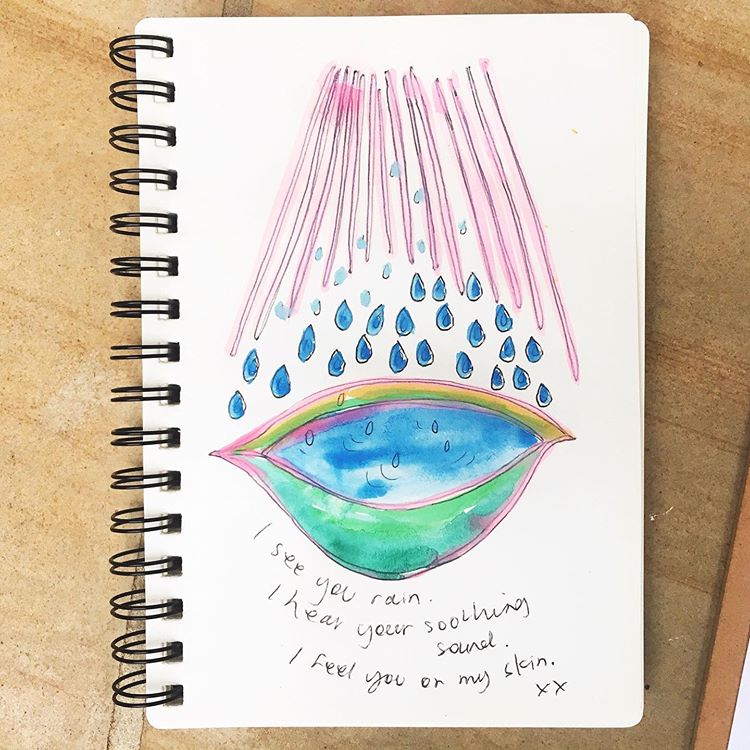 I see you rain.
I hear your soothing
sound.
I feel you on my skin.
xx